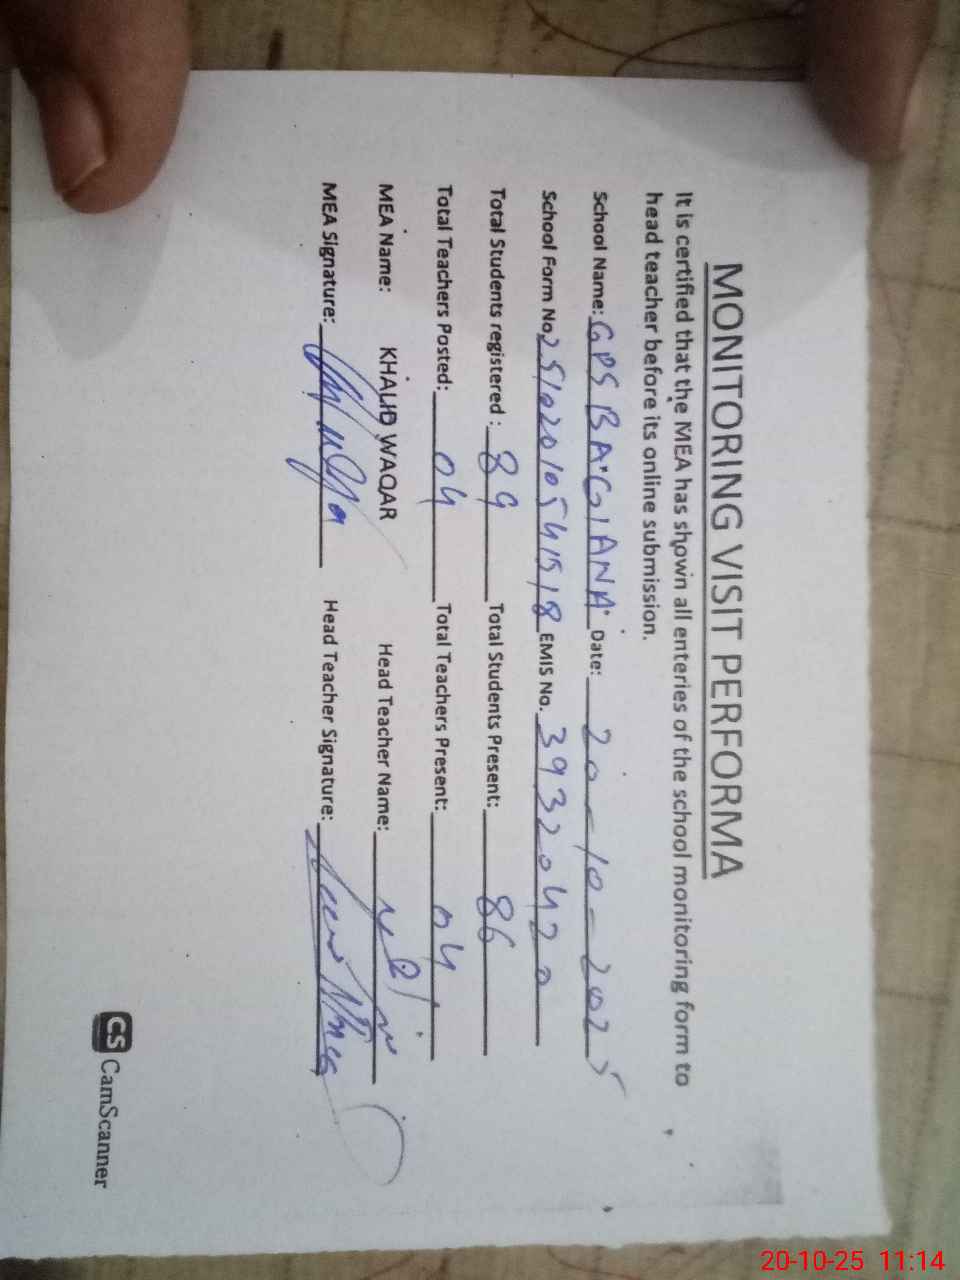 MONITORING VISIT PERFORMA
It is certified that the MEA has shown all enteries of the school monitoring form to
head teacher before its online submission.
School Name: GPS BAGIANA Date: 20-10-2025
School Form No. 25102010541518 EMIS No. 39320420
Total Students registered : 89 Total Students Present: 86
Total Teachers Posted: 04 Total Teachers Present: 04
MEA Name: KHALID WAQAR Head Teacher Name:
MEA Signature: Head Teacher Signature:
CS CamScanner
20-10-25 11:14